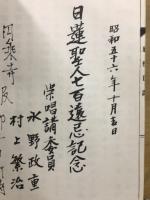 昭和五十六年十月吉日
日蓮聖人七百遠忌記念
崇唱講委員
永野政重
村上繁治